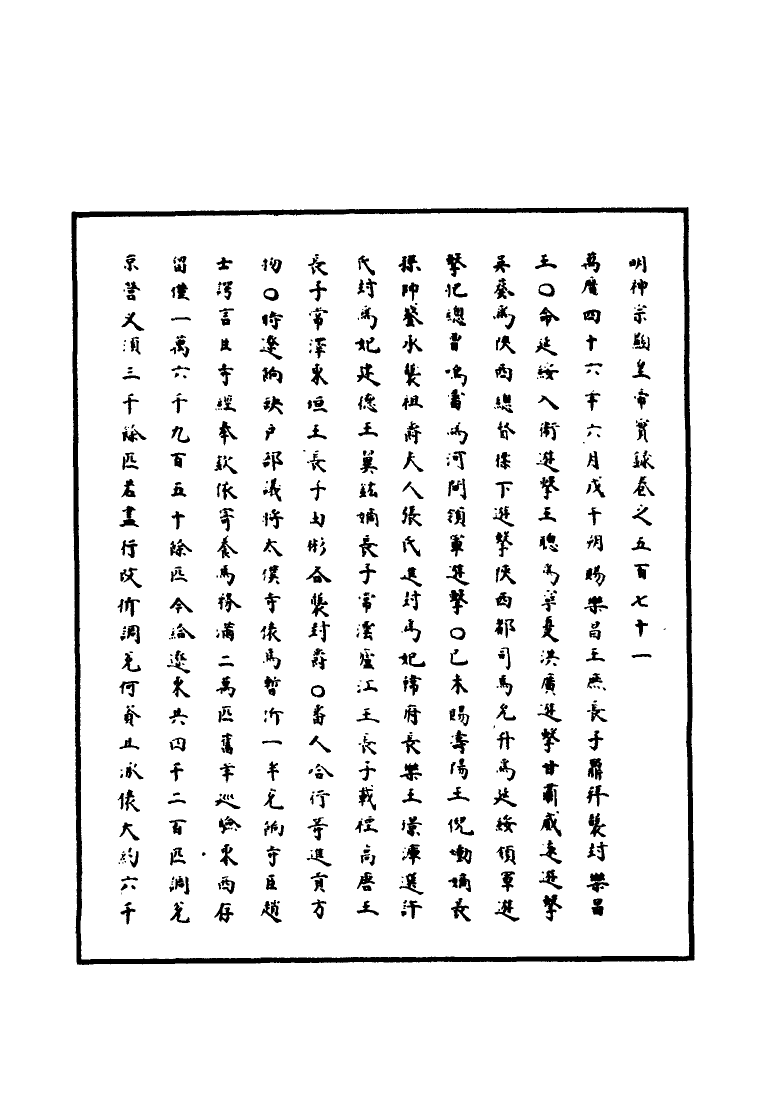 明神宗顯皇帝實錄卷之五百七十一
萬曆四十六年六月戊午朔賜樂昌王燕長子鼐拜襲封樂昌
王〇命延綏入衛遊擊王聰為寧夏洪廣遊擊甘肅威遠遊擊
吳鰲為陝西總督標下遊擊陝西都司馬允升為延綏領軍遊
擊把總曹鳴雷為河間領軍遊擊〇己未賜壽陽王倪㘦嫡長
孫帥鋆承襲祖爵夫人張氏進封為妃禕府長樂王璟溥選許
氏封為妃建德王翼鋐嫡長子常澐廬江王長子載桱高唐王
長子常澤東垣王長子由彬各襲封爵〇番人哈行等進貢方
物〇時遼餉缺戶部議將太僕寺俵馬暫折一半充餉寺臣趙
士諤言臣寺經奉欽依寄養馬務滿二萬匹舊年巡驗東西存
留僅一萬六千九百五十餘匹今給遼東共四千二百匹調兌
京營又須三千餘匹若盡行改折調兌何資且派俵大約六千